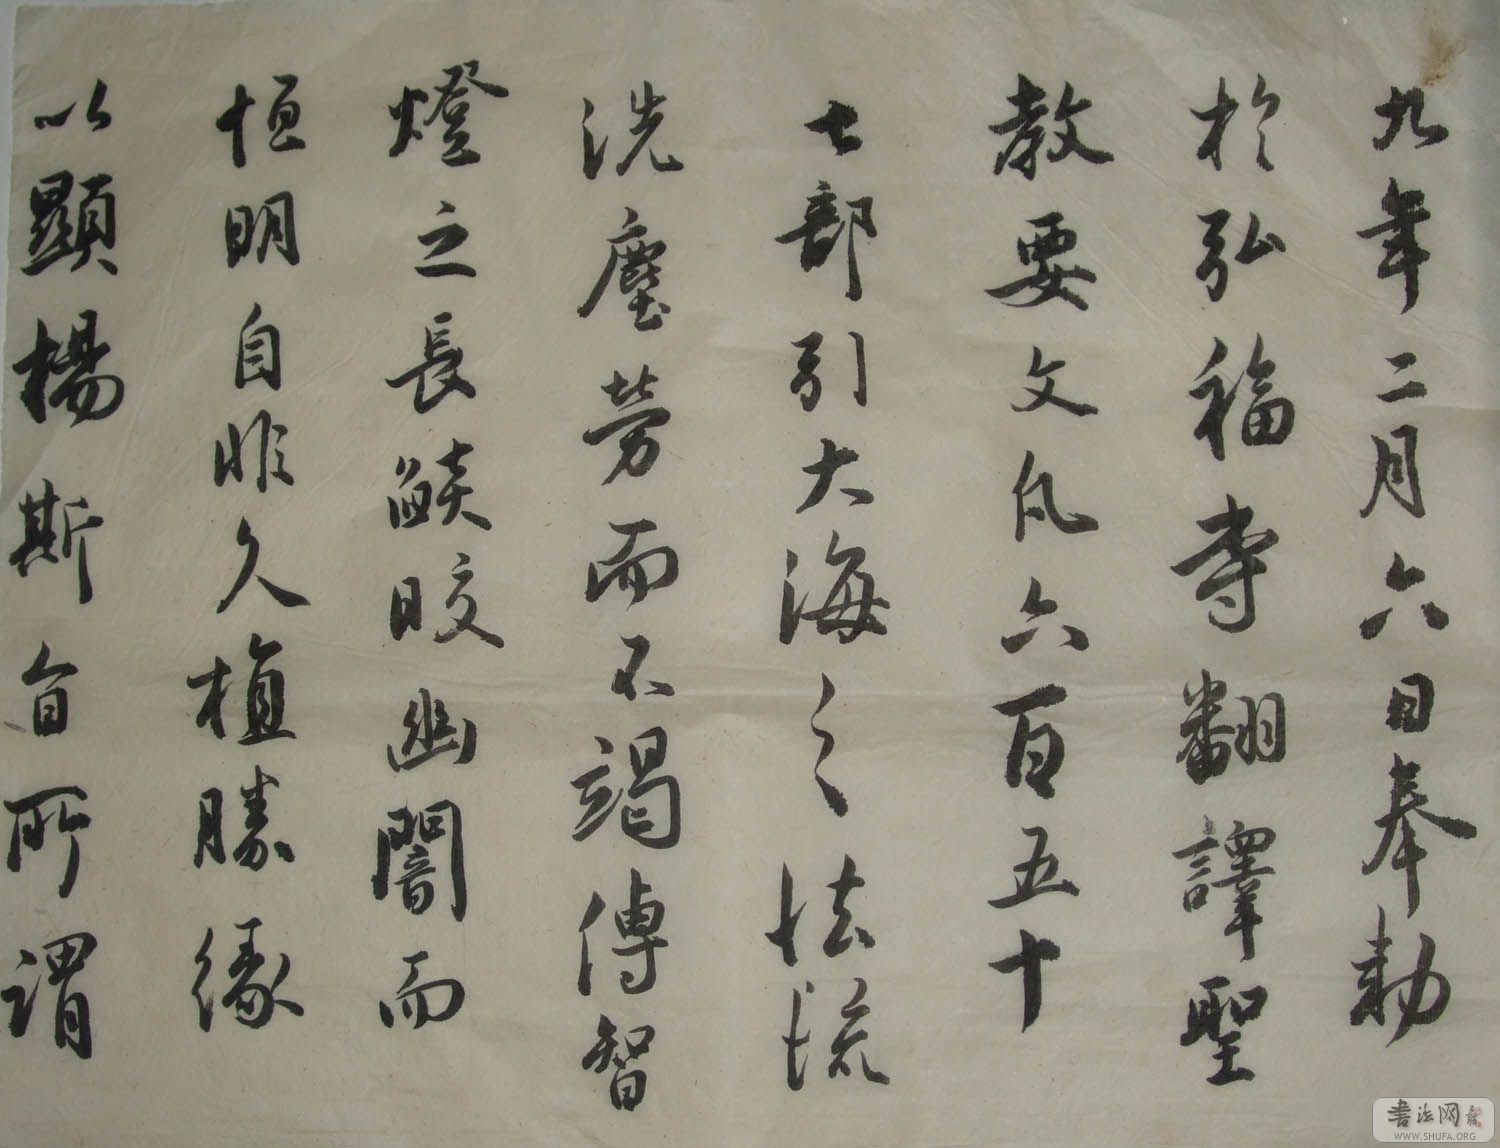 九年二月六日奉勅
於弘福寺翻譯聖
教要文凡六百五十
七部引大海之法流
洗塵勞而不竭傳智
燈之長燄皎幽闇而
恒明自非久植勝緣
以顯揚斯旨所謂
書法网
WWW.SHUFA.ORG